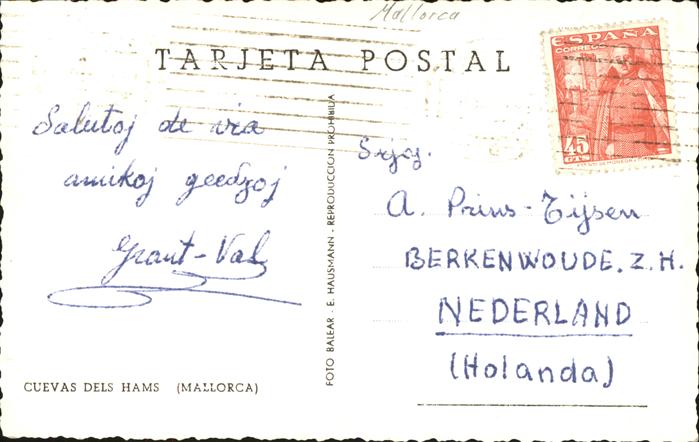 Mallorca
TARJETA POSTAL
ESPAÑA
CORREOS
45
CTS
Salutoj de via
amikoj geedzoj
Grant-Val
CUEVAS DELS HAMS (MALLORCA)
FOTO BALEAR - E. HAUSMANN - REPRODUCCION PROHIBIDA
Srjoj.
A. Prins-Tijsen
BERKENWOUDE. Z. H.
NEDERLAND
(Holanda)